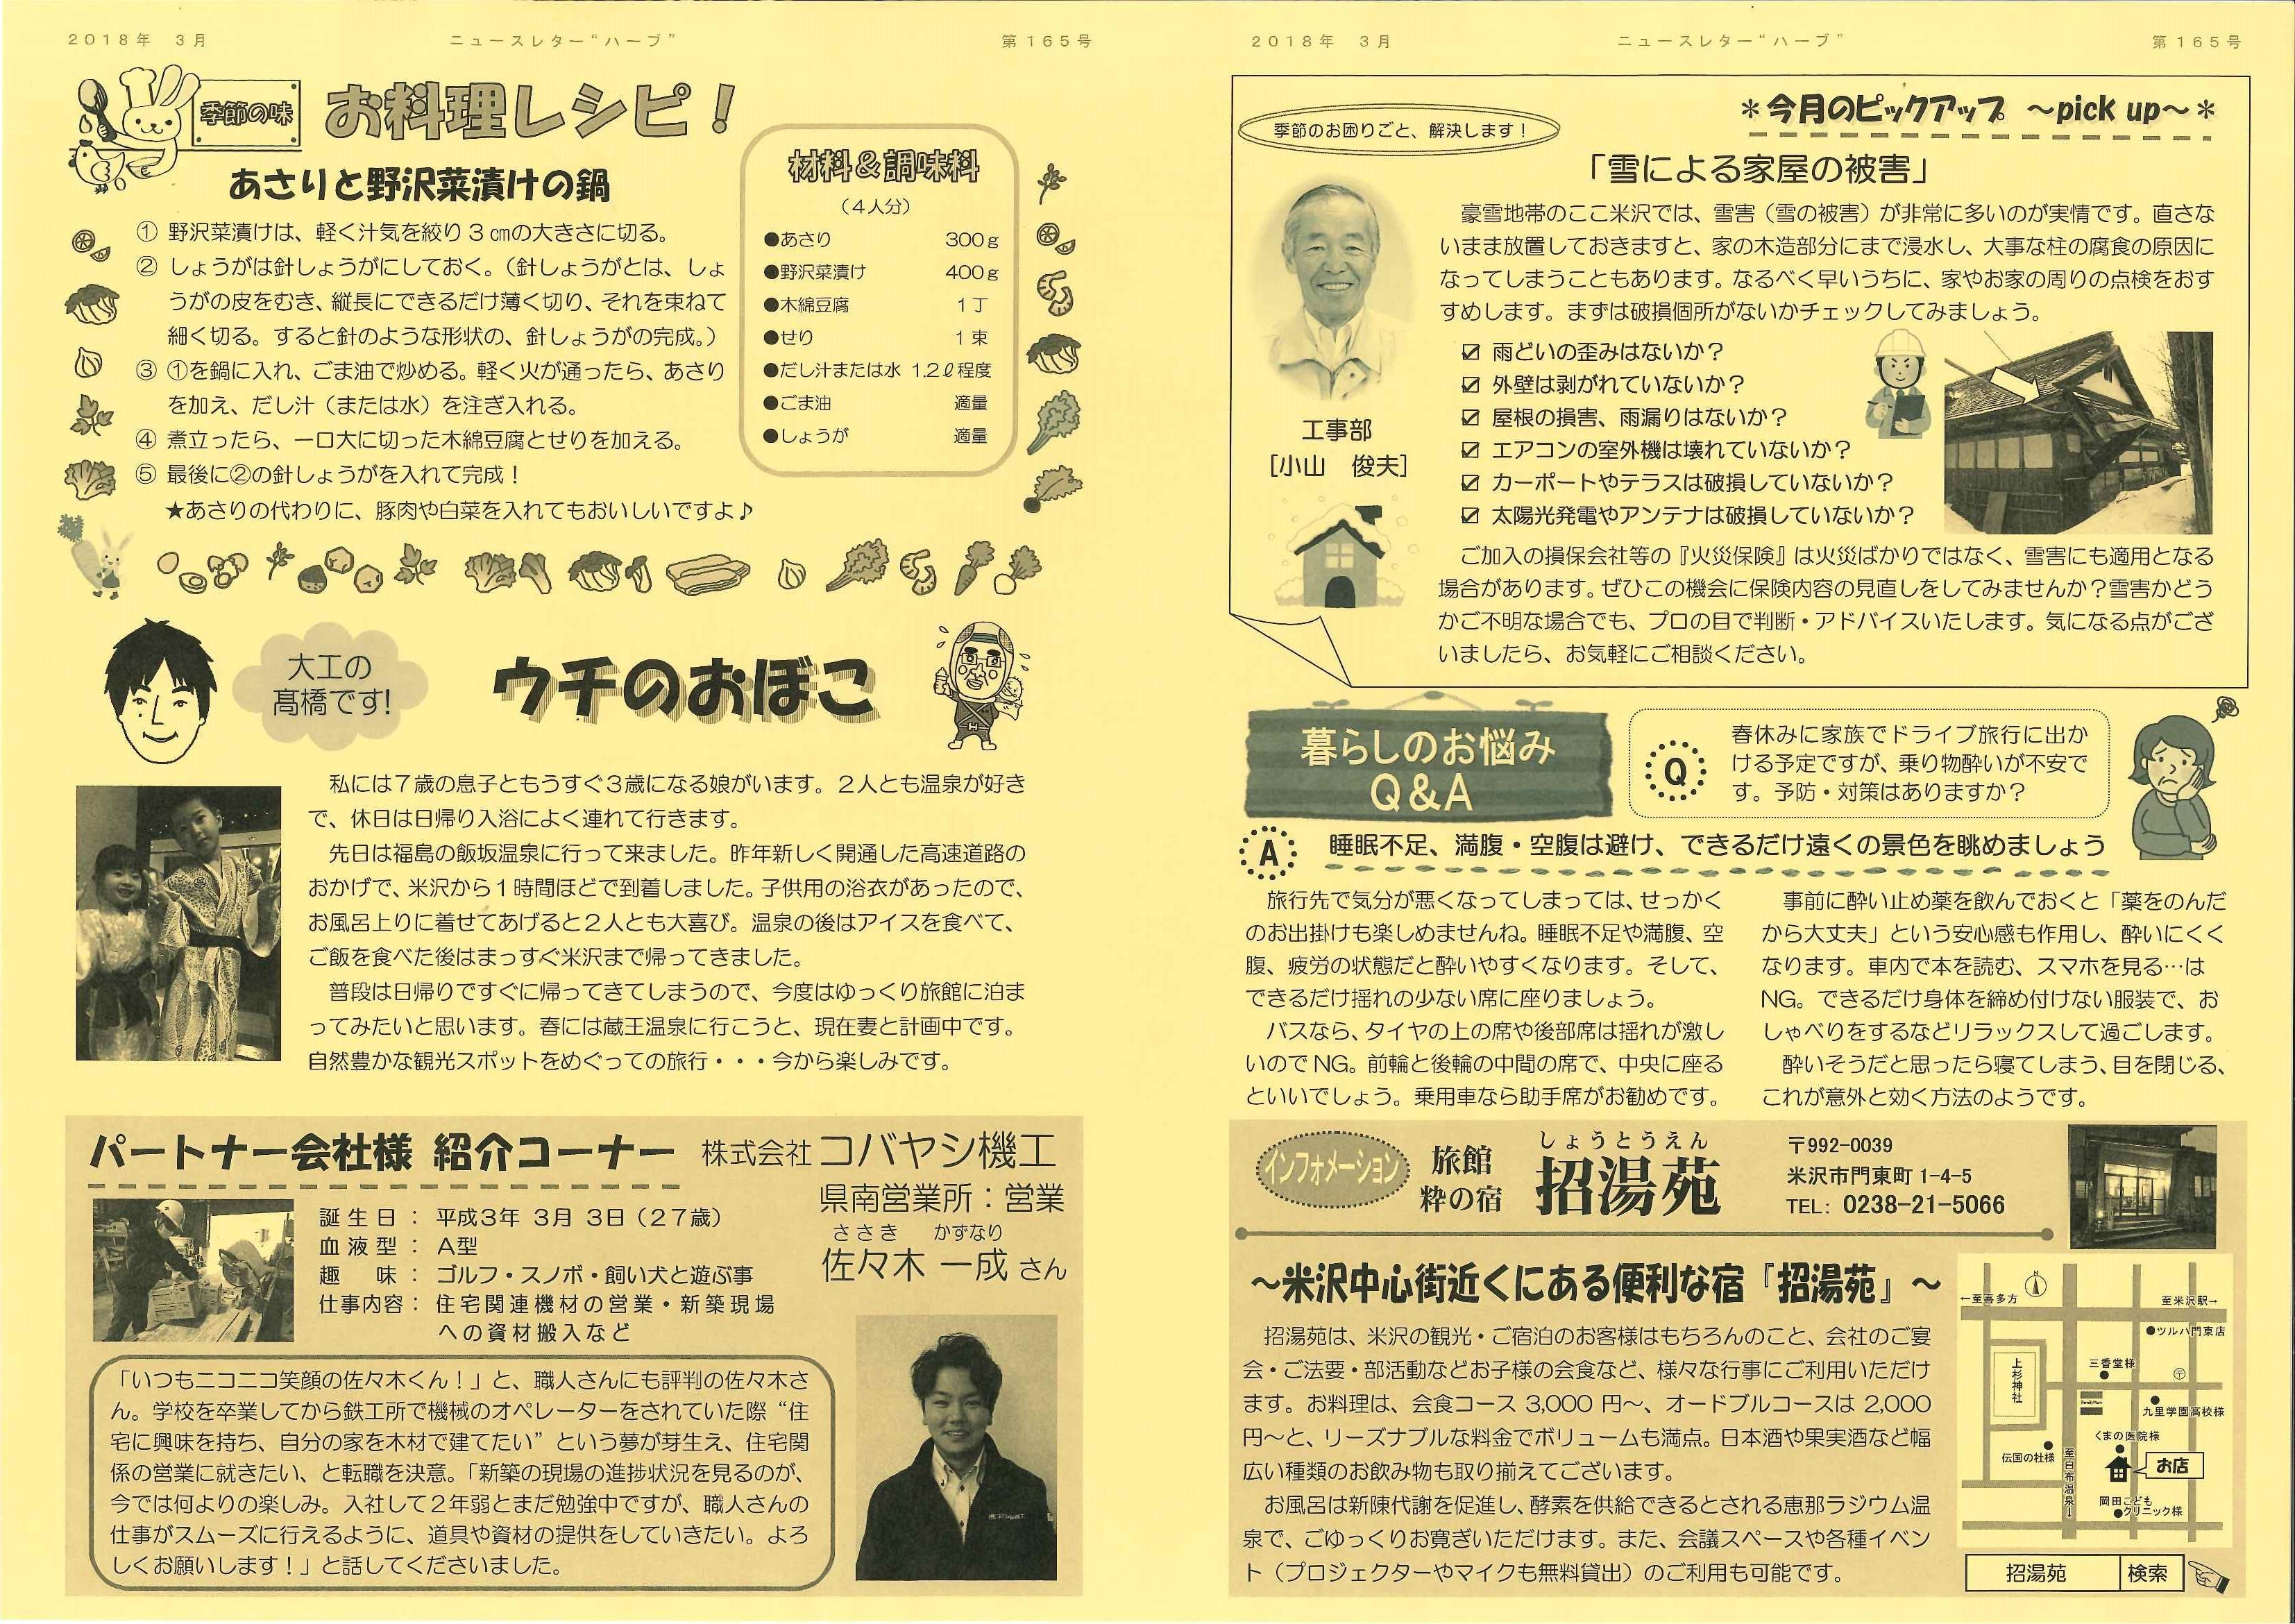 2018年　3月
ニュースレター“ハーブ”
第165号
季節の味
お料理レシピ！
あさりと野沢菜漬けの鍋
① 野沢菜漬けは、軽く汁気を絞り３㎝の大きさに切る。
② しょうがは針しょうがにしておく。（針しょうがとは、しょ
うがの皮をむき、縦長にできるだけ薄く切り、それを束ねて
細く切る。すると針のような形状の、針しょうがの完成。）
③ ①を鍋に入れ、ごま油で炒める。軽く火が通ったら、あさり
を加え、だし汁（または水）を注ぎ入れる。
④ 煮立ったら、一口大に切った木綿豆腐とせりを加える。
⑤ 最後に②の針しょうがを入れて完成！
★あさりの代わりに、豚肉や白菜を入れてもおいしいですよ♪
材料＆調味料
（４人分）
●あさり　300ｇ
●野沢菜漬け　400ｇ
●木綿豆腐　１丁
●せり　１束
●だし汁または水 1.2ℓ程度
●ごま油　適量
●しょうが　適量
大工の
髙橋です!
ウチのおぼこ
私には７歳の息子ともうすぐ３歳になる娘がいます。２人とも温泉が好き
で、休日は日帰り入浴によく連れて行きます。
先日は福島の飯坂温泉に行って来ました。昨年新しく開通した高速道路の
おかげで、米沢から１時間ほどで到着しました。子供用の浴衣があったので、
お風呂上りに着せてあげると２人とも大喜び。温泉の後はアイスを食べて、
ご飯を食べた後はまっすぐ米沢まで帰ってきました。
普段は日帰りですぐに帰ってきてしまうので、今度はゆっくり旅館に泊ま
ってみたいと思います。春には蔵王温泉に行こうと、現在妻と計画中です。
自然豊かな観光スポットをめぐっての旅行・・・今から楽しみです。
パートナー会社様 紹介コーナー
株式会社 コバヤシ機工
県南営業所：営業
ささき　かずなり
佐々木 一成 さん
誕生日： 平成３年 ３月 ３日（２７歳）
血液型： A型
趣　味： ゴルフ・スノボ・飼い犬と遊ぶ事
仕事内容： 住宅関連機材の営業・新築現場
への資材搬入など
「いつもニコニコ笑顔の佐々木くん！」と、職人さんにも評判の佐々木さ
ん。学校を卒業してから鉄工所で機械のオペレーターをされていた際“住
宅に興味を持ち、自分の家を木材で建てたい”という夢が芽生え、住宅関
係の営業に就きたい、と転職を決意。「新築の現場の進捗状況を見るのが、
今では何よりの楽しみ。入社して２年弱とまだ勉強中ですが、職人さんの
仕事がスムーズに行えるように、道具や資材の提供をしていきたい。よろ
しくお願いします！」と話してくださいました。
2018年　3月
ニュースレター“ハーブ”
第165号
季節のお困りごと、解決します！
＊今月のピックアップ　～pick up～＊
「雪による家屋の被害」
工事部
［小山　俊夫］
豪雪地帯のここ米沢では、雪害（雪の被害）が非常に多いのが実情です。直さな
いまま放置しておきますと、家の木造部分にまで浸水し、大事な柱の腐食の原因に
なってしまうこともあります。なるべく早いうちに、家やお家の周りの点検をおす
すめします。まずは破損個所がないかチェックしてみましょう。
☑ 雨どいの歪みはないか？
☑ 外壁は剥がれていないか？
☑ 屋根の損害、雨漏りはないか？
☑ エアコンの室外機は壊れていないか？
☑ カーポートやテラスは破損していないか？
☑ 太陽光発電やアンテナは破損していないか？
ご加入の損保会社等の『火災保険』は火災ばかりではなく、雪害にも適用となる
場合があります。ぜひこの機会に保険内容の見直しをしてみませんか？雪害かどう
かご不明な場合でも、プロの目で判断・アドバイスいたします。気になる点がござ
いましたら、お気軽にご相談ください。
暮らしのお悩み
Q＆A
Q
春休みに家族でドライブ旅行に出か
ける予定ですが、乗り物酔いが不安で
す。予防・対策はありますか？
A
睡眠不足、満腹・空腹は避け、できるだけ遠くの景色を眺めましょう
旅行先で気分が悪くなってしまっては、せっかく
のお出掛けも楽しめませんね。睡眠不足や満腹、空
腹、疲労の状態だと酔いやすくなります。そして、
できるだけ揺れの少ない席に座りましょう。
バスなら、タイヤの上の席や後部席は揺れが激し
いので NG。前輪と後輪の中間の席で、中央に座る
といいでしょう。乗用車なら助手席がお勧めです。
事前に酔い止め薬を飲んでおくと「薬をのんだ
から大丈夫」という安心感も作用し、酔いにくく
なります。車内で本を読む、スマホを見る…は
NG。できるだけ身体を締め付けない服装で、お
しゃべりをするなどリラックスして過ごします。
酔いそうだと思ったら寝てしまう、目を閉じる、
これが意外と効く方法のようです。
インフォメーション
旅館
粋の宿
しょうとうえん
招湯苑
〒992-0039
米沢市門東町 1-4-5
TEL: 0238-21-5066
～米沢中心街近くにある便利な宿『招湯苑』～
招湯苑は、米沢の観光・ご宿泊のお客様はもちろんのこと、会社のご宴
会・ご法要・部活動などお子様の会食など、様々な行事にご利用いただけ
ます。お料理は、会食コース 3,000 円～、オードブルコースは 2,000
円～と、リーズナブルな料金でボリュームも満点。日本酒や果実酒など幅
広い種類のお飲み物も取り揃えてございます。
お風呂は新陳代謝を促進し、酵素を供給できるとされる恵那ラジウム温
泉で、ごゆっくりお寛ぎいただけます。また、会議スペースや各種イベン
ト（プロジェクターやマイクも無料貸出）のご利用も可能です。
N
←至喜多方
至米沢駅→
●ツルハ門東店
上杉神社
三香堂様
〒
FamilyMart
九里学園高校様
くまの医院様
伝国の杜様
至白布温泉↓
お店
岡田こども
●クリニック様
招湯苑
検索